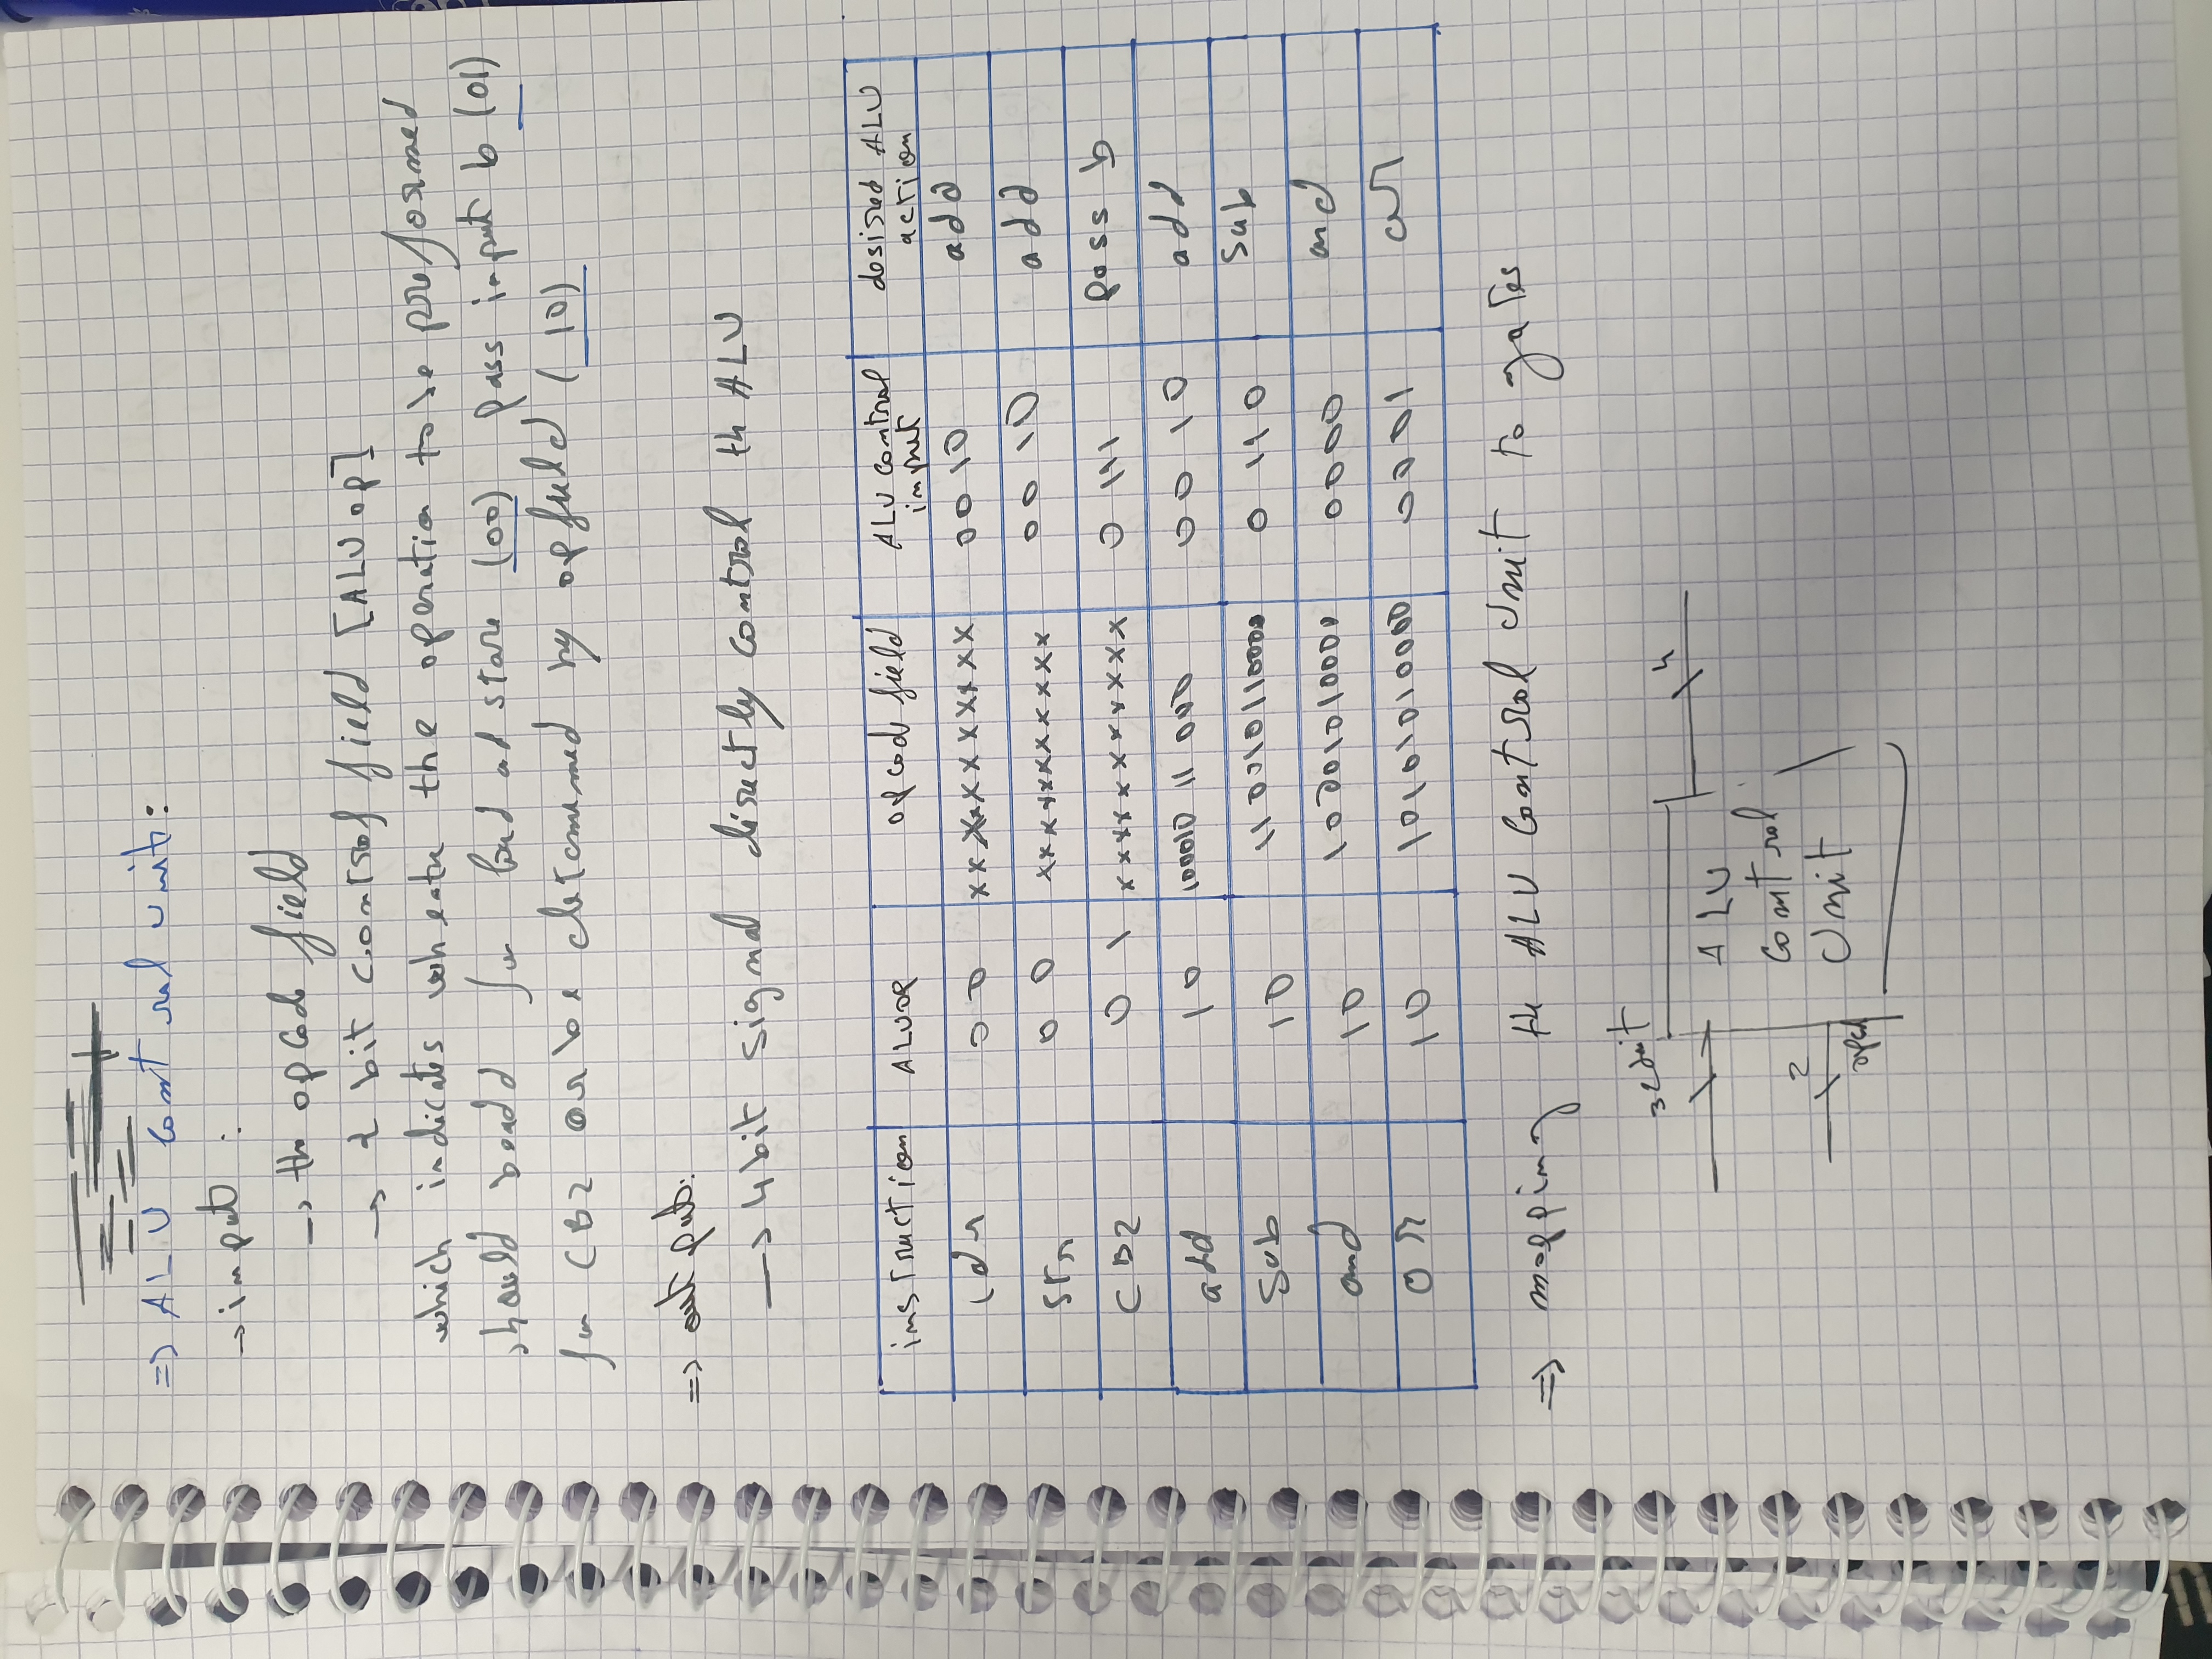 => ALU control unit:
→ input :
→ th opcode field
→ 2 bit control field [ALU op]
which indicates wheate the operation to be preformed
should beadd for load ad store (00) pass input b (01)
for CBZ or be determined by opfield (10)
=> output:
→ 4 bit signal directly control th ALU
instruction ALUOP opcode field ALU control input desired ALU action
ldr 00 xxxxxxxxxxx 0010 add
str 00 xxxxxxxxxxx 0010 add
CBZ 01 xxxxxxxxxxx 0111 pass b
add 10 10001011000 0010 add
Sub 10 110010110000 0110 Sub
and 10 10001010000 0000 and
or 10 10101010000 0001 or
=> mapping th ALU control unit to gates
4
ALU
control
2
Unit